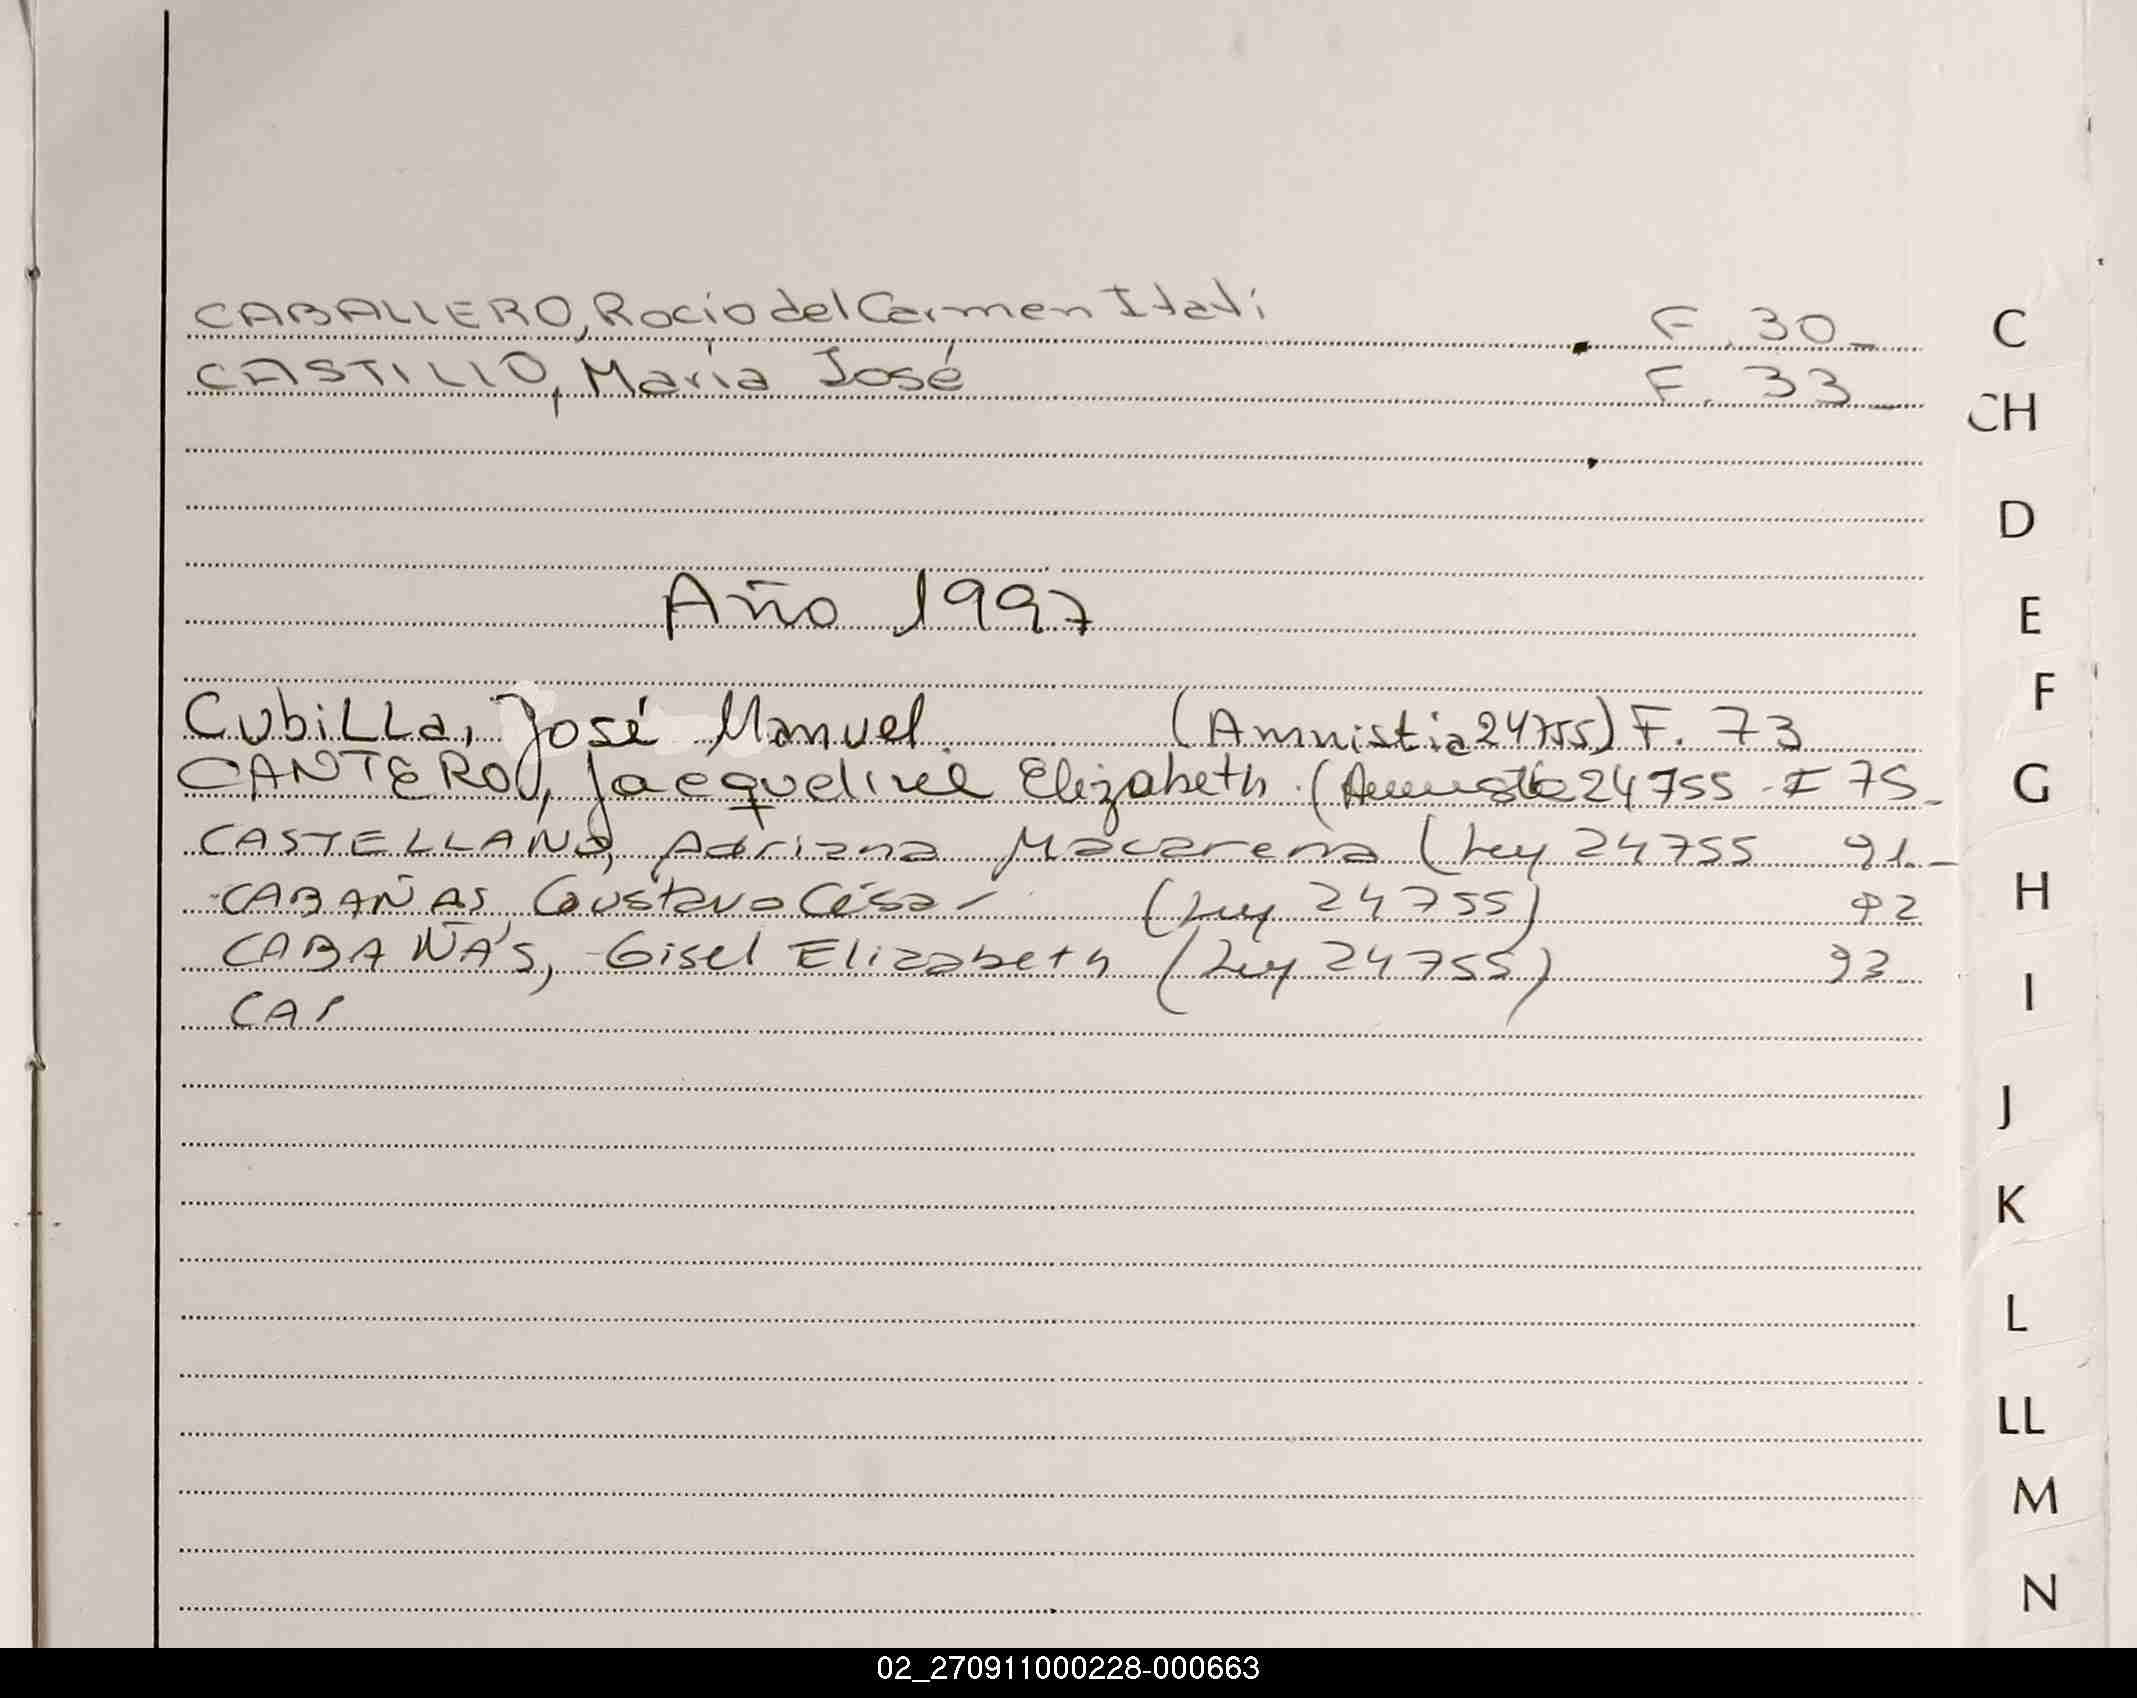 CABALLERO, Rocio del Carmen Itati F. 30_
CASTILLO, María José F. 33_
Año 1997
Cubilla, José Manuel. (Amnistia 24755) F. 73
CANTERO, Jacqueline Elizabeth. (Amnistia 24755 - F 75_
CASTELLANO, Adriana Macarena (Ley 24755 91._
CABAÑAS, Gustavo César (Ley 24755) 92
CABAÑAS, Gisel Elizabeth (Ley 24755) 93
CA
C
CH
D
E
F
G
H
I
J
K
L
LL
M
N
02_270911000228-000663